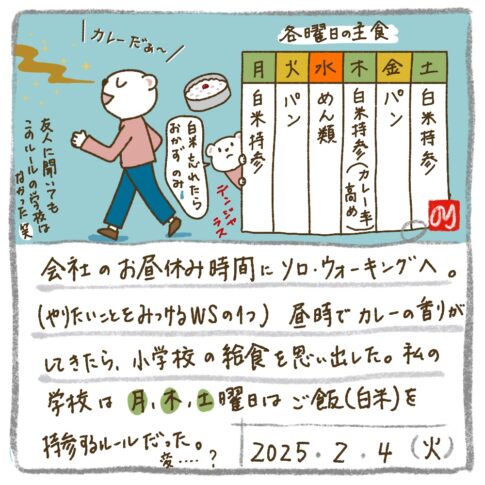 カレーだぁ～
各曜日の主食
月 火 水 木 金 土
白米持参
パン
めん類
白米持参(カレー率高め)
パン
白米持参
白米忘れたら
おかずのみ
デンジャラス
友人に聞いても
このルールの学校は
なかった 笑
会社のお昼休み時間にソロ・ウォーキングへ。
(やりたいことをみつけるWSの1つ) 昼時でカレーの香りが
してきたら、小学校の給食を思い出した。私の
学校は月、木、土曜日はご飯(白米)を
持参するルールだった。
変……?
2025.2.4(火)